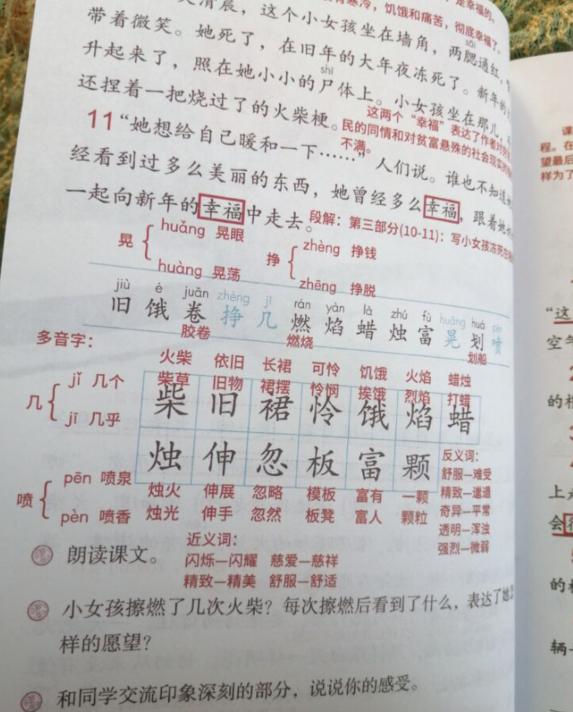 寒冷，饥饿和痛苦，彻底幸福了。
清晨，这个小女孩坐在墙角，两腮通红，
sāi
带着微笑。她死了，在旧年的大年夜冻死了。新年的
升起来了，照在她小小的尸体上。小女孩坐在那儿，
shī
还捏着一把烧过了的火柴梗。
这两个“幸福”表达了作者对
民的同情和对贫富悬殊的社会现实
不满。
11 “她想给自己暖和一下……”人们说。谁也不知道
经看到过多么美丽的东西，她曾经多么幸福，跟着她
一起向新年的幸福中走去。
段解：第三部分(10-11)：写小女孩冻死在
晃 huǎng 晃眼
huàng 晃荡
挣 zhèng 挣钱
zhēng 挣脱
jiù é juǎn zhēng jǐ rán yàn là zhú fù huǎng huá pēn
旧 饿 卷 挣 几 燃 焰 蜡 烛 富 晃 划 喷
胶卷 燃烧 划船
多音字：
几 jǐ 几个
jī 几乎
喷 pēn 喷泉
pèn 喷香
火柴 依旧 长裙 可怜 饥饿 火焰 蜡烛
柴草 旧物 裙摆 怜悯 挨饿 烈焰 打蜡
柴 旧 裙 怜 饿 焰 蜡
烛 伸 忽 板 富 颗
烛火 伸展 忽略 模板 富有 一颗
烛光 伸手 忽然 板凳 富人 颗粒
反义词：
舒服—难受
精致—邋遢
奇异—平常
透明—浑浊
强烈—微弱
近义词：
闪烁—闪耀 慈爱—慈祥
精致—精美 舒服—舒适
朗读课文。
小女孩擦燃了几次火柴？每次擦燃后看到了什么，表达了她
样的愿望？
和同学交流印象深刻的部分，说说你的感受。
课
程。在
望最后
样为了
“这
空气
的根
上
会
的根
辆